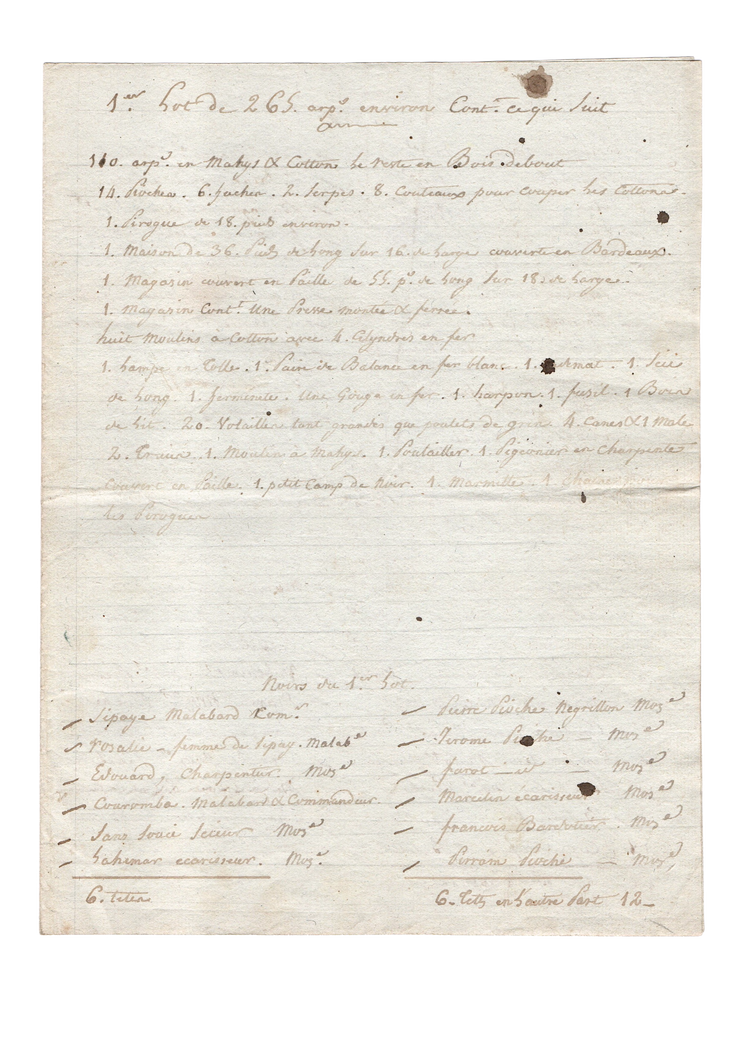 1er. Lot de 265. arps. environ Contt. ce qui Suit
110. arps. en Mahys & Cotton le reste en Bois debout
14. Pioches. 6. haches. 2. Serpes. 8. Couteaux pour couper les Cottons.
1. Pirogue de 18. pieds environ.
1. Maison de 36. Pieds de Long Sur 16. de Large couverte en Bardeaux.
1. Magasin couvert en Paille de 55. ps. de Long Sur 18 de Large.
1. Magasin Contt. Une Presse montée & ferrée.
huit Moulins à Cotton avec 4. Cilyndres en fer
1. Lampe en Tolle. 1. Paire de Balance en fer blanc. 1. 1 Scie
de Long. 1. ferminete. Une Gouge en fer. 1. harpon. 1. fusil. 1 Bois
de Lit. 20. Volailles tant grandes que poulets de grin 4. Canes & 1 Male
2. Truies. 1. Moulin à Mahys. 1. Poulailler. 1. Pigeonier en Charpente
couvert en Paille. 1. petit Camp de Noir. 1. Marmitte. 1. Chaine
les Pirogues
Noirs du 1er. Lot.
Sipaye Malabard Comr.
Rosalie femme de Sipay. Malabe
Edouard, Charpentier. Moze
Couromba. Malabard & Commandeur.
Sans Souci Scieur Moze
Lahimar écarisseur. Moz.
6. têtes
Pierre Pioche Negrillon Moze
Jerome Pioche — Moze
parot — id — Moze
Marcelin écarisseur Moze
francois Bardotier. Moze
Pirram Pioche — Moze.
6. Tetes en L'autre Part 12_